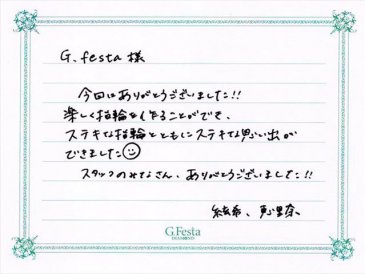 G.festa 様
今回はありがとうございました!!
楽しく指輪を作ることができ、
ステキな指輪とともにステキな思い出が
できました
スタッフのみなさん、ありがとうございました!!
結希、恵里奈
G.Festa
DIAMOND